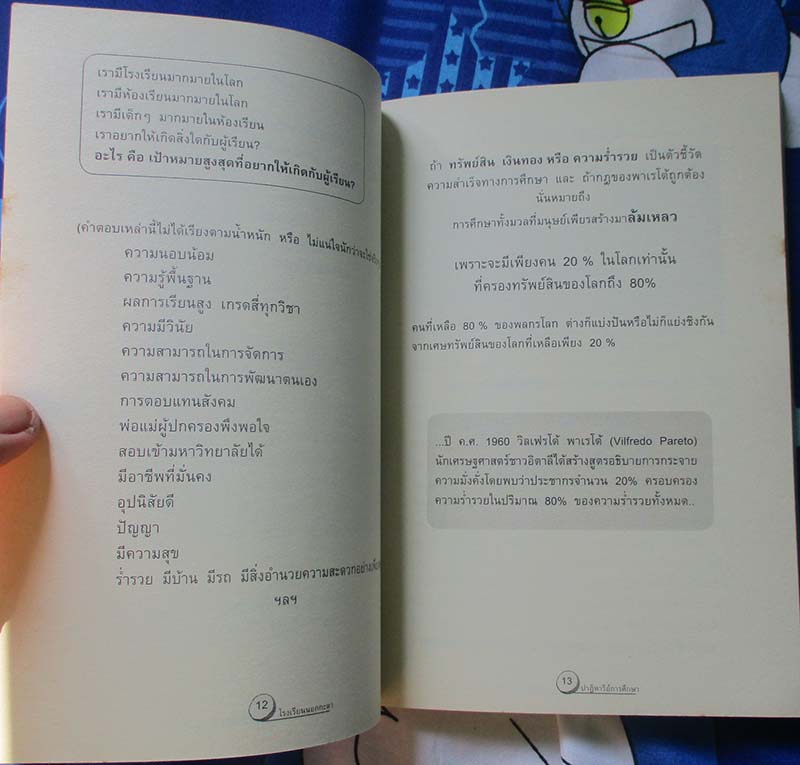 เรามีโรงเรียนมากมายในโลก
เรามีห้องเรียนมากมายในโลก
เรามีเด็กๆ มากมายในห้องเรียน
เราอยากให้เกิดสิ่งใดกับผู้เรียน?
อะไร คือ เป้าหมายสูงสุดที่อยากให้เกิดกับผู้เรียน?
(คำตอบเหล่านี้ไม่ได้เรียงตามน้ำหนัก หรือ ไม่แน่ใจนักว่าจะใช่
ความนอบน้อม
ความรู้พื้นฐาน
ผลการเรียนสูง เกรดสี่ทุกวิชา
ความมีวินัย
ความสามารถในการจัดการ
ความสามารถในการพัฒนาตนเอง
การตอบแทนสังคม
พ่อแม่ผู้ปกครองพึงพอใจ
สอบเข้ามหาวิทยาลัยได้
มีอาชีพที่มั่นคง
อุปนิสัยดี
ปัญญา
มีความสุข
ร่ำรวย มีบ้าน มีรถ มีสิ่งอำนวยความสะดวกอย่าง
ฯลฯ
12 โรงเรียนนอกกะลา
ถ้า ทรัพย์สิน เงินทอง หรือ ความร่ำรวย เป็นตัวชี้วัด
ความสำเร็จทางการศึกษา และ ถ้ากฎของพาเรโต้ถูกต้อง
นั่นหมายถึง
การศึกษาทั้งมวลที่มนุษย์เพียรสร้างมาล้มเหลว
เพราะจะมีเพียงคน 20 % ในโลกเท่านั้น
ที่ครองทรัพย์สินของโลกถึง 80%
คนที่เหลือ 80 % ของพลกรโลก ต่างก็แบ่งปันหรือไม่ก็แย่งชิงกัน
จากเศษทรัพย์สินของโลกที่เหลือเพียง 20 %
...ปี ค.ศ. 1960 วิลเฟรโด้ พาเรโต้ (Vilfredo Pareto)
นักเศรษฐศาสตร์ชาวอิตาลีได้สร้างสูตรอธิบายการกระจาย
ความมั่งคั่งโดยพบว่าประชากรจำนวน 20% ครอบครอง
ความร่ำรวยในปริมาณ 80% ของความร่ำรวยทั้งหมด..
13 ปาฏิหาริย์การศึกษา